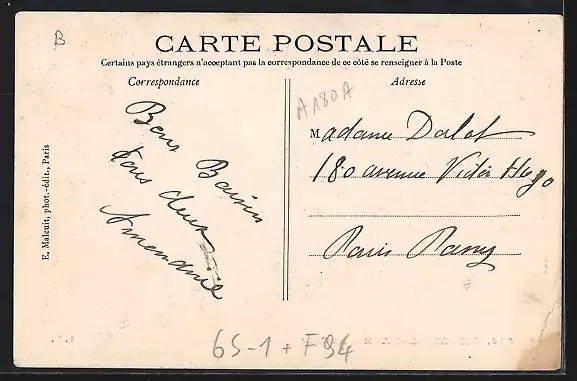 B
CARTE POSTALE
Certains pays étrangers n'acceptant pas la correspondance de ce côté se renseigner à la Poste
Correspondance
Adresse
A180A
Madame Dalot
180 avenue Victor Hugo
Paris Passy
Bons Baisers
tous deux
E. Malcuit, phot.-édit., Paris
65-1 + F94